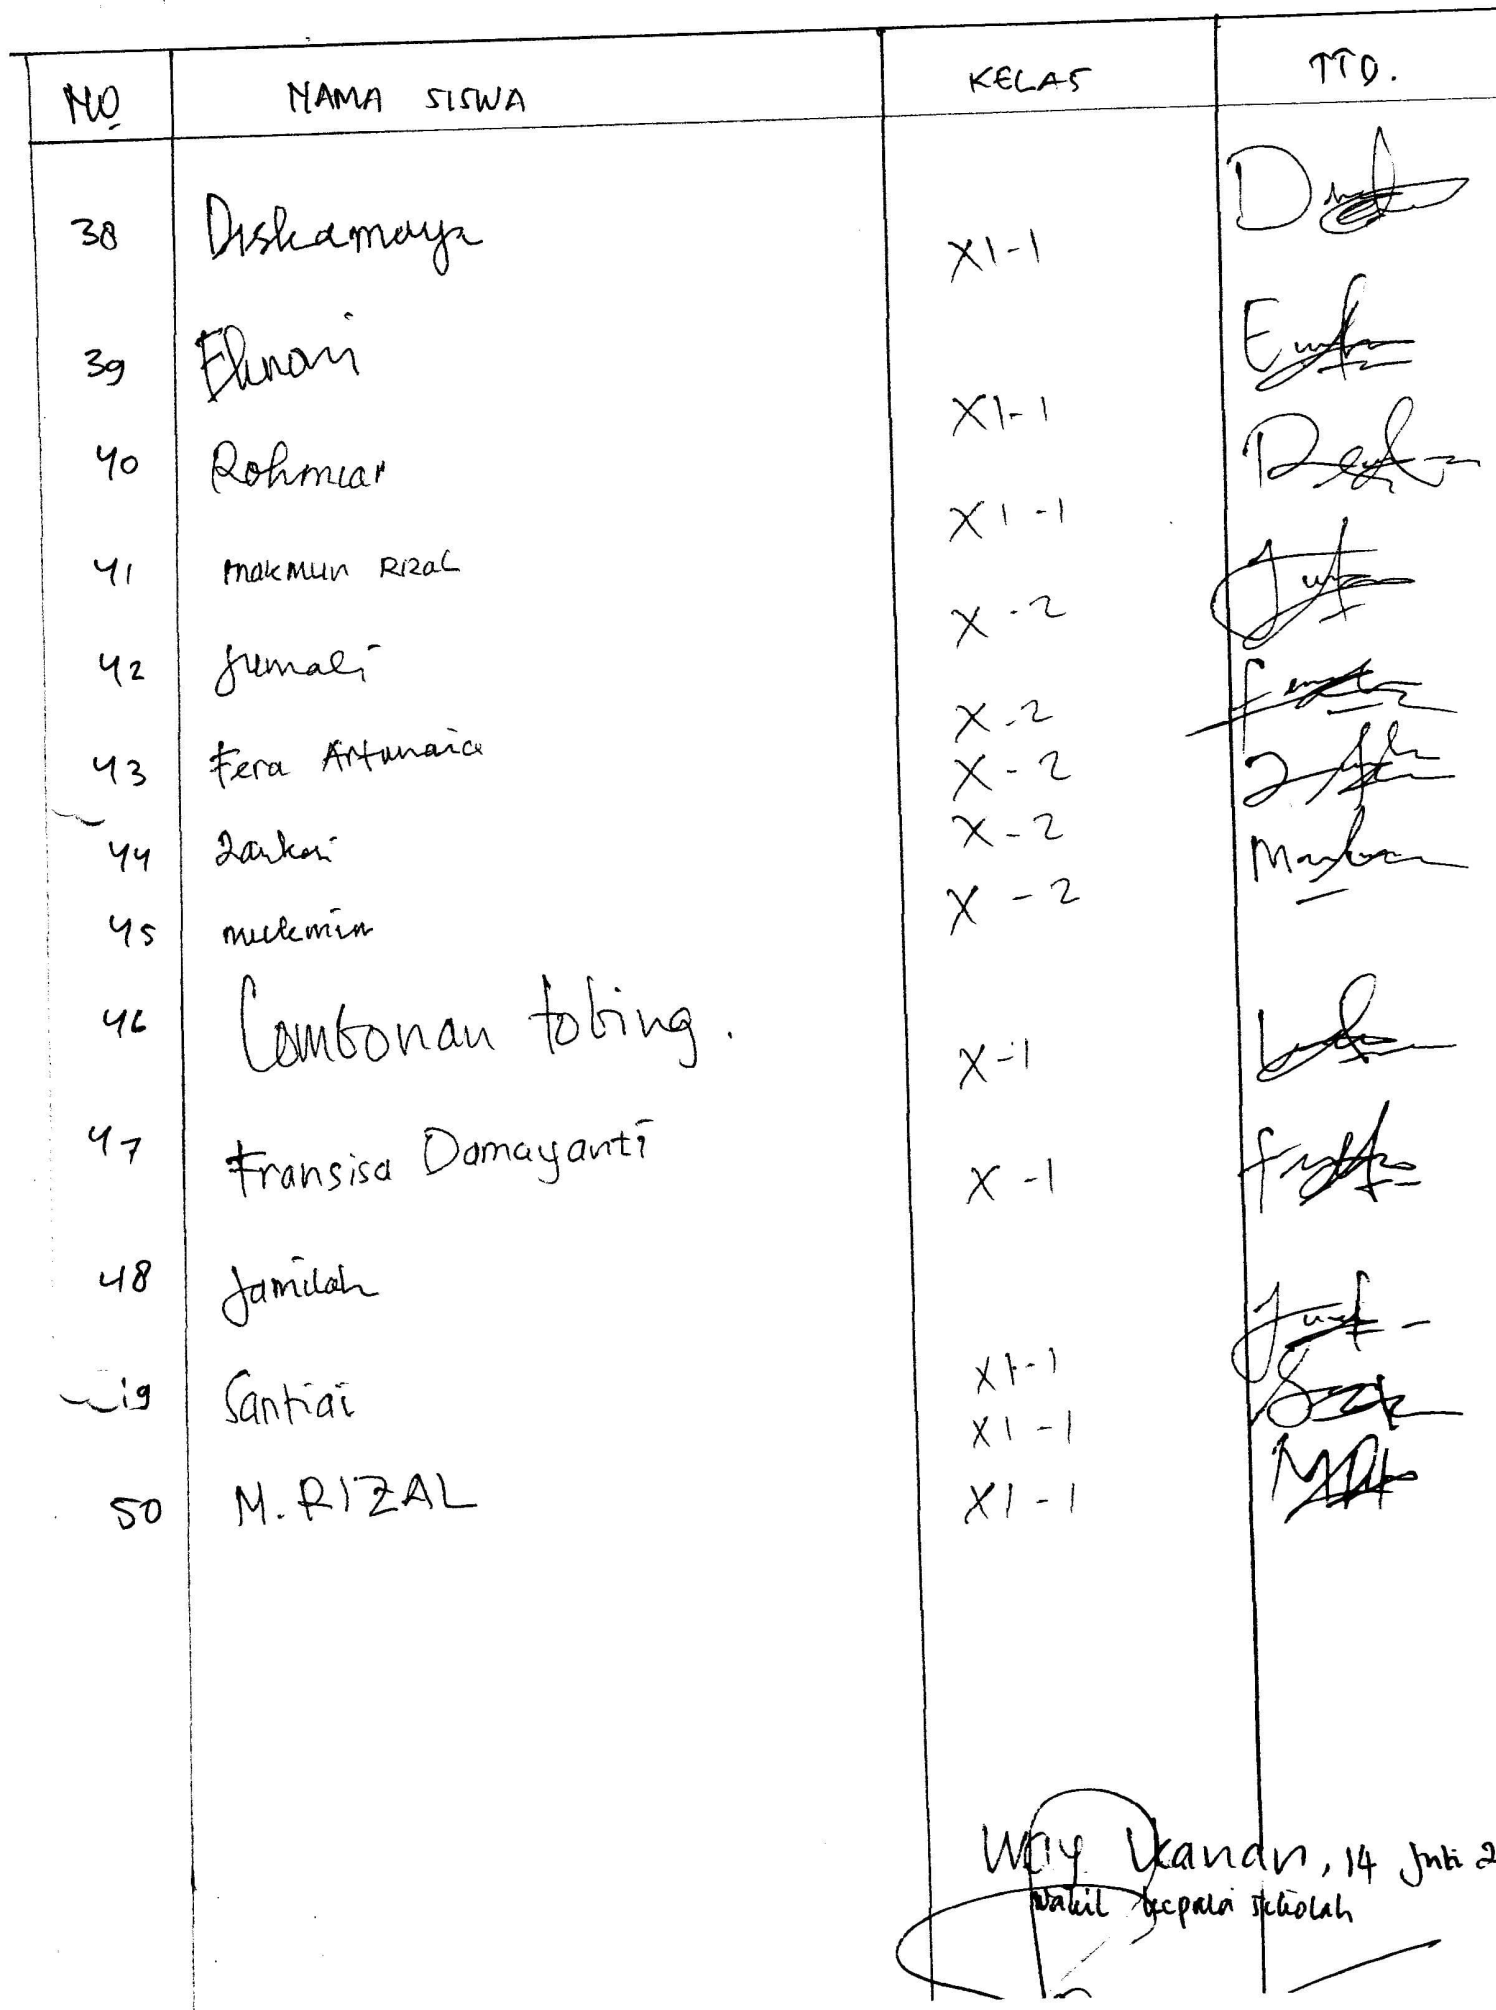 NO NAMA SISWA KELAS TTD.
38 Diskamaya XI-1
39 XI-1
40 Rohmiar XI-1
41 Makmun Rizal X-2
42 Jumali X-2
43 Fera X-2
44 X-2
45 mukmin X-2
46 tobing. X-1
47 Fransisa Damayanti X-1
48 Jamilah XI-1
49 Santiai XI-1
50 M. RIZAL XI-1
Way Kanan, 14 Juli 2
Wakil kepala sekolah